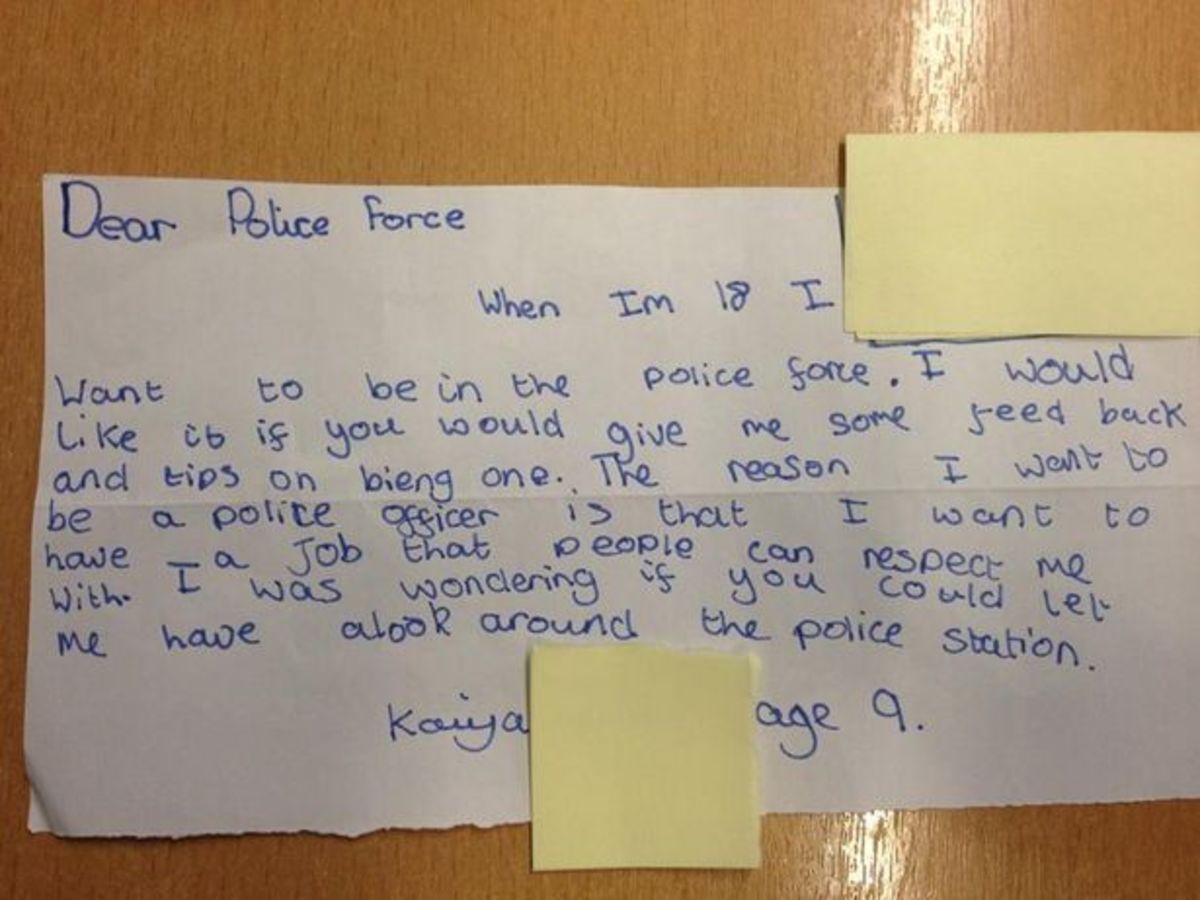 Dear Police force
When Im 18 I
Want to be in the police force. I would
Like it if you would give me some feed back
and tips on bieng one. The reason I want to
be a police officer is that I want to
have a Job that people can respect me
With. I was wondering if you could let
me have alook around the police station.
Kaiya age 9.